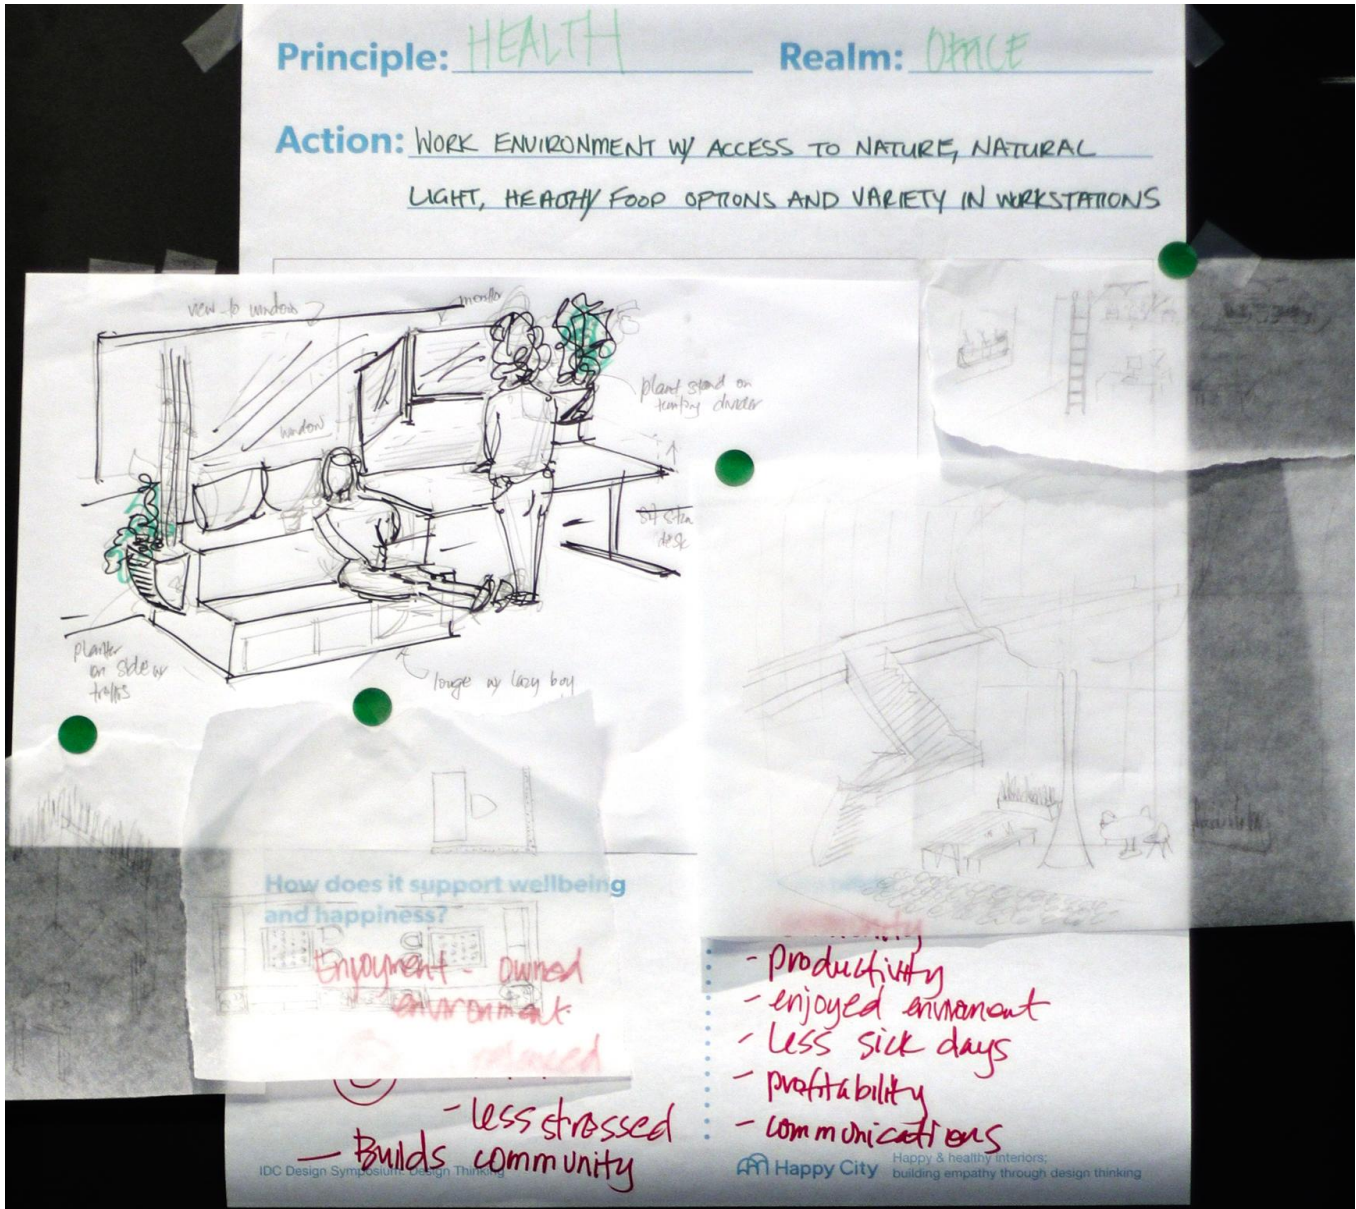 Principle: HEALTH
Realm: OFFICE
Action: WORK ENVIRONMENT W/ ACCESS TO NATURE, NATURAL
LIGHT, HEALTHY FOOD OPTIONS AND VARIETY IN WORKSTATIONS
view to window
monitor
window
plant stand on
divider
desk
planter
on side w
lounge w/ lazy boy
How does it support wellbeing
and happiness?
Enjoyment - owned
environment
relaxed
- less stressed
- Builds community
- productivity
- enjoyed enviroment
- less sick days
- profitability
- communications
IDC Design Symposium: Design Thinking
Happy City
Happy & healthy interiors:
building empathy through design thinking